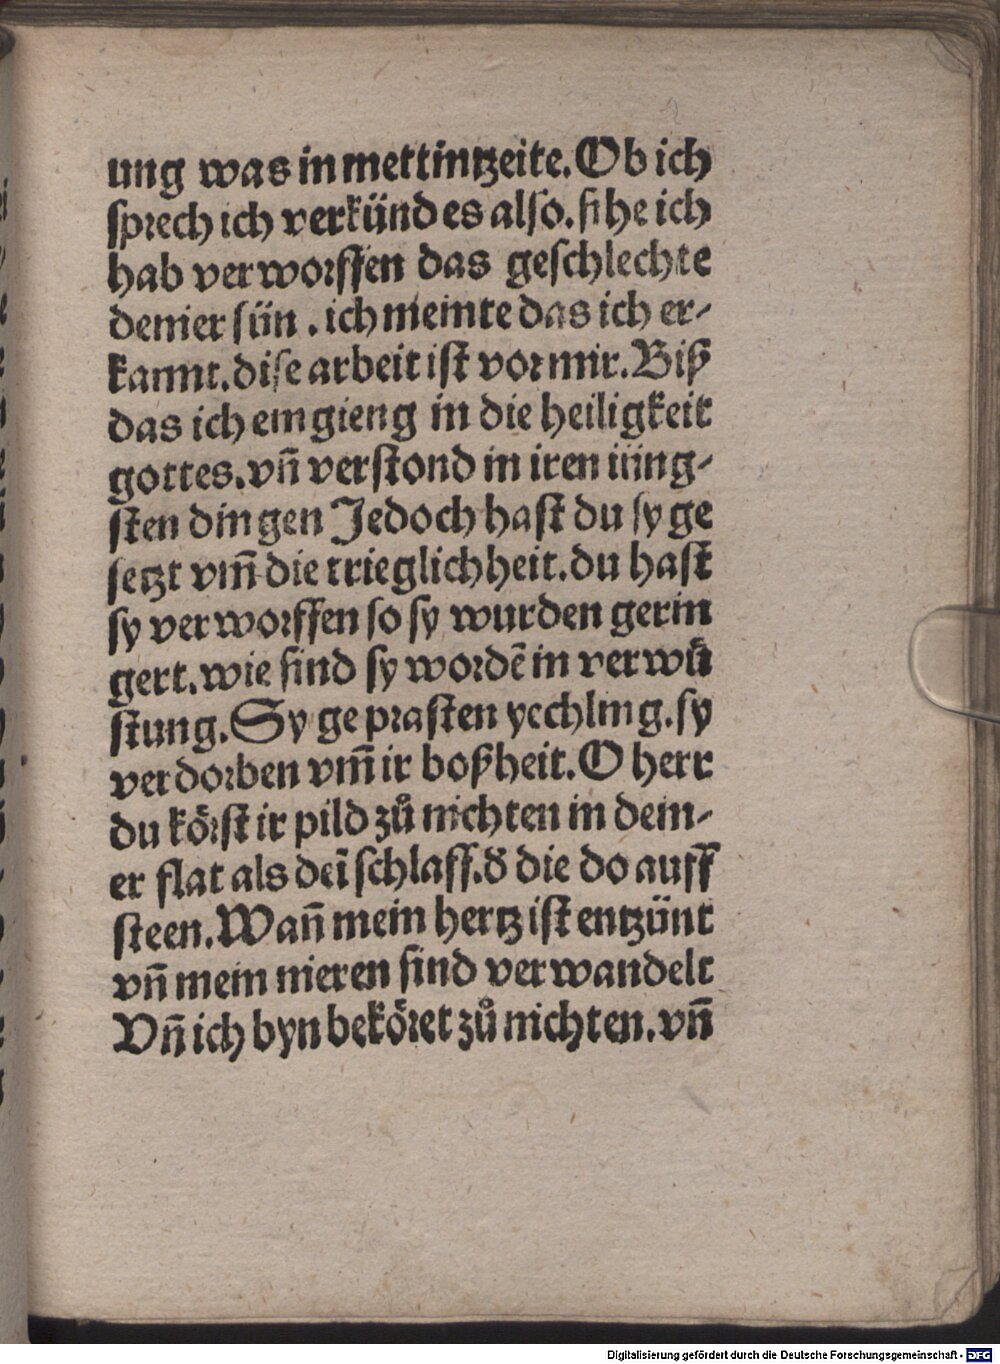 ung was in mettintzeite. Ob ich
sprech ich verkünd es also. sihe ich
hab verworffen das geschlechte
deiner sün. ich meinte das ich er-
kannt. dise arbeit ist vor mir. Biß
das ich eingieng in die heiligkeit
gottes. vñ verstond in iren iüng-
sten dingen Jedoch hast du sy ge
setzt vm̃ die trieglichheit. du hast
sy verworffen so sy wurden gerin
gert. wie sind sy wordẽ in verwů
stung. Sy geprasten yechling. sy
verdorben vm̃ ir boßheit. O herr
du körst ir pild zů nichten in dein-
er stat als deĩ schlaff. d̕ die do auff
steen. Wañ mein hertz ist entzünt
vñ mein nieren sind verwandelt
Vñ ich byn beköret zů nichten. vñ
Digitalisierung gefördert durch die Deutsche Forschungsgemeinschaft - DFG